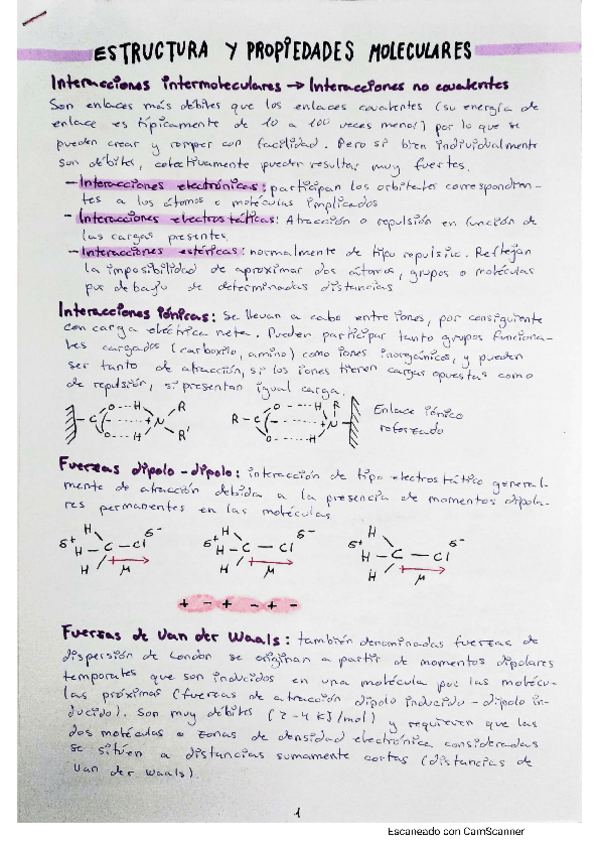 ESTRUCTURA Y PROPIEDADES MOLECULARES
Interacciones intermoleculares → Interacciones no covalentes
Son enlaces más débiles que los enlaces covalentes (su energía de
enlace es típicamente de 10 a 100 veces menor) por lo que se
pueden crear y romper con facilidad. Pero si bien individualmente
son débiles, colectivamente pueden resultar muy fuertes.
- Interacciones electrónicas: participan los orbitales correspondien-
tes a los átomos o moléculas implicados
- Interacciones electrostáticas: Atracción o repulsión en función de
las cargas presentes.
- Interacciones estéricas: normalmente de tipo repulsivo. Reflejan
la imposibilidad de aproximar dos átomos, grupos o moléculas
por debajo de determinadas distancias
Interacciones iónicas: Se llevan a cabo entre iones, por consiguiente
con carga eléctrica neta. Pueden participar tanto grupos funciona-
les cargados (carboxilo, amino) como iones inorgánicos, y pueden
ser tanto de atracción, si los iones tienen cargas opuestas como
de repulsión, si presentan igual carga.
O --- H R O --- H R
- C + N R - C + N
O --- H R' O --- H
Enlace iónico
reforzado
Fuerzas dipolo-dipolo: interacción de tipo electrostático general-
mente de atracción debida a la presencia de momentos dipola-
res permanentes en las moléculas
H δ- H δ- H δ-
δ+ H - C - Cl δ+ H - C - Cl δ+ H - C - Cl
H μ H μ H μ
+ - + - + -
Fuerzas de Van der Waals: también denominadas fuerzas de
dispersión de London se originan a partir de momentos dipolares
temporales que son inducidos en una molécula por las molécu-
las próximas (fuerzas de atracción dipolo inducido - dipolo in-
ducido). Son muy débiles (2-4 kJ/mol) y requieren que las
dos moléculas o zonas de densidad electrónica consideradas
se sitúen a distancias sumamente cortas (distancias de
Van der Waals).
1
Escaneado con CamScanner